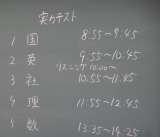 実力テスト
1 国 8:55～9:45
2 英 9:55～10:45
リスニング 10:00～
3 社 10:55～11:45
4 理 11:55～12:45
5 数 13:35～14:25